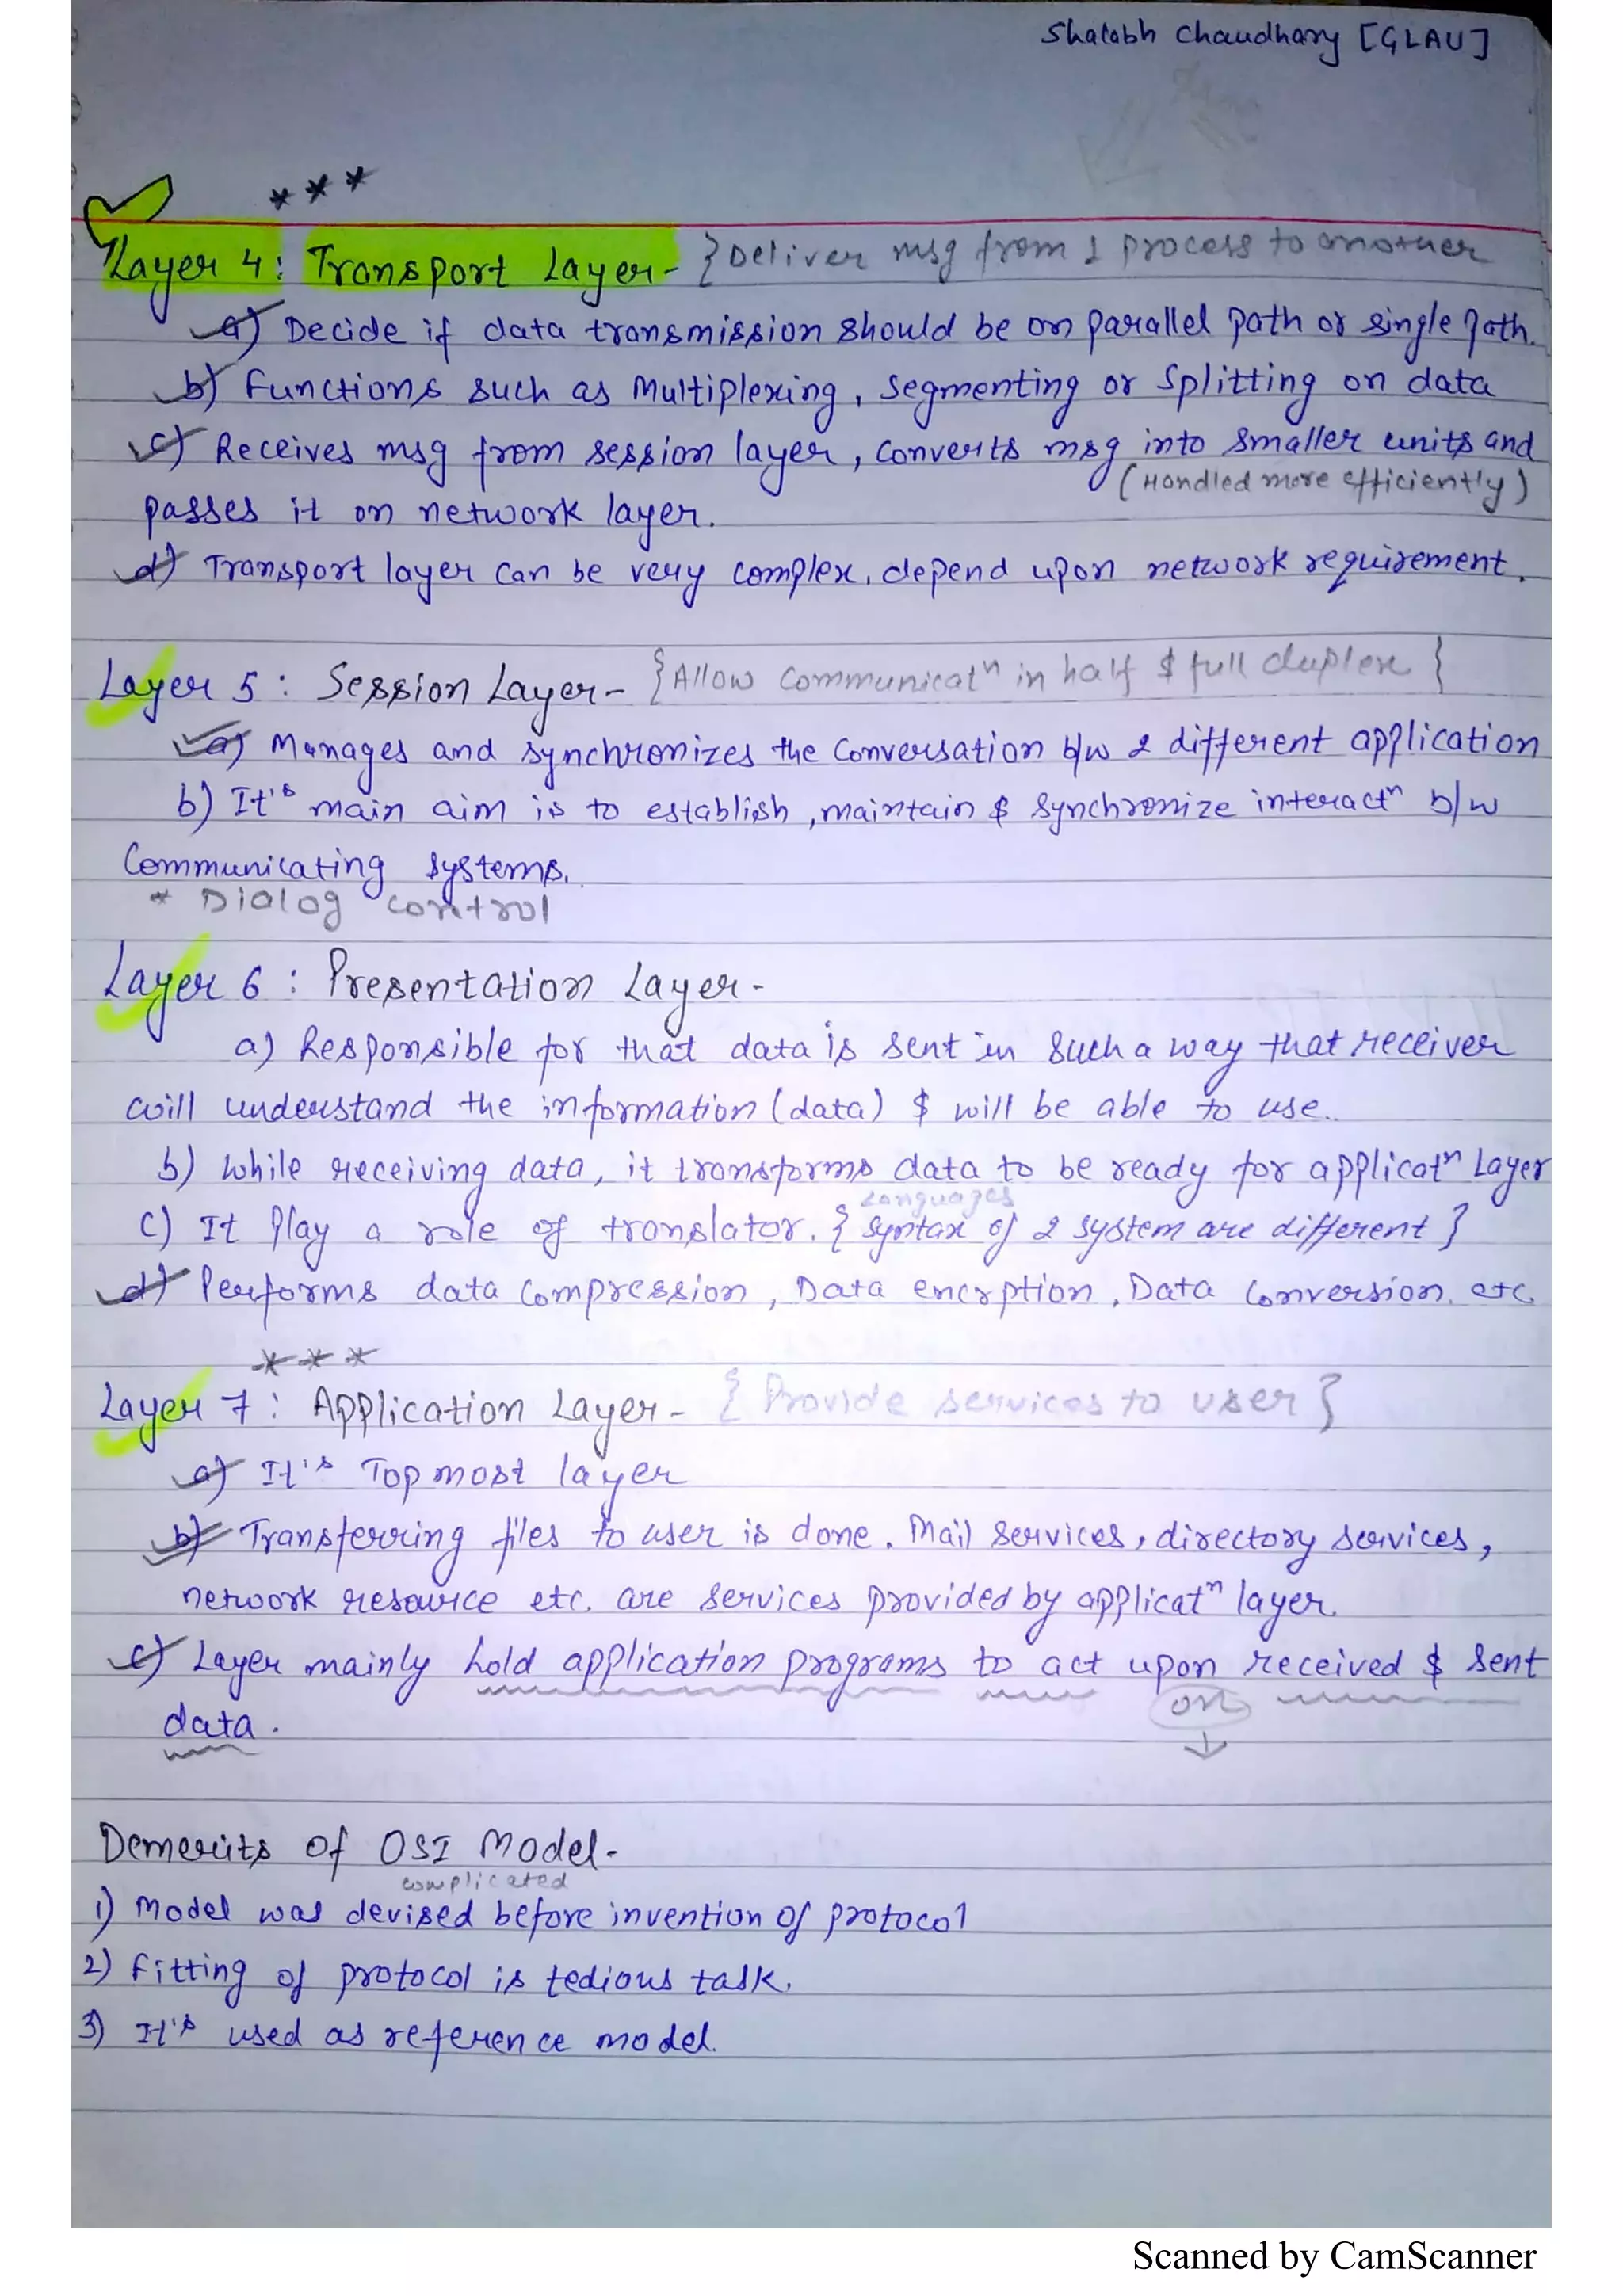 Shalabh Chaudhary [GLAU]
***
Layer 4: Transport Layer- {Deliver msg from 1 process to another
a) Decide if data transmission should be on parallel path or single path.
b) Functions such as Multiplexing, Segmenting or Splitting on data
c) Receives msg from session layer, converts msg into smaller units and
(Handled more efficiently)
passes it on network layer.
d) Transport layer can be very complex, depend upon network requirement.
Layer 5: Session Layer- {Allow communicatn in half & full duplex}
a) Manages and synchronizes the conversation b/w 2 different application
b) It's main aim is to establish, maintain & synchronize interactn b/w
communicating systems.
* Dialog control
Layer 6: Presentation Layer-
a) Responsible for that data is sent in such a way that receiver
will understand the information (data) & will be able to use.
b) While receiving data, it transforms data to be ready for applicatn Layer
Languages
c) It play a role of translator. {syntax of 2 system are different}
d) Performs data compression, Data encrption, Data conversion. etc.
***
Layer 7: Application Layer- {Provide services to user}
a) It's Topmost layer
b) Transferring files to user is done. Mail services, directory services,
network resource etc. are services provided by applicatn layer.
c) Layer mainly hold application programs to act upon received & sent
on
data.
Demerits of OSI Model-
complicated
1) Model was devised before invention of protocol
2) Fitting of protocol is tedious task.
3) It's used as reference model.
Scanned by CamScanner